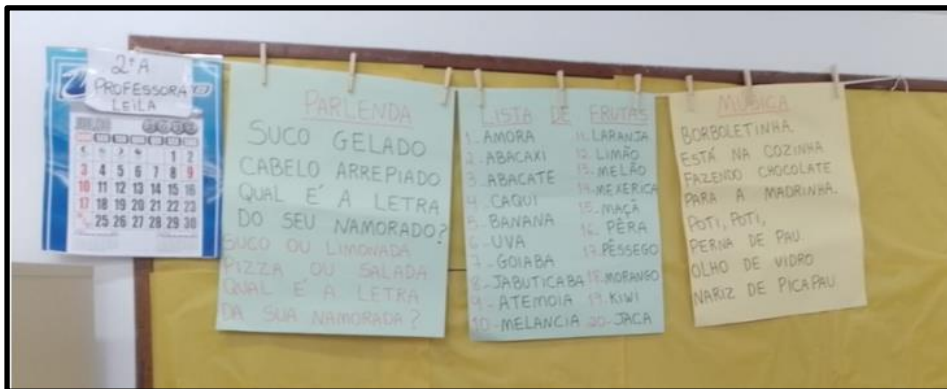 2º A
PROFESSORA
LEILA
JULHO
1 2
3 4 5 6 7 8 9
10 11 12 13 14 15 16
17 18 19 20 21 22 23
25 26 27 28 29 30
PARLENDA
SUCO GELADO
CABELO ARREPIADO
QUAL É A LETRA
DO SEU NAMORADO?
SUCO OU LIMONADA
PIZZA OU SALADA
QUAL É A LETRA
DA SUA NAMORADA?
LISTA DE FRUTAS
1- AMORA
2- ABACAXI
3- ABACATE
4- CAQUI
5- BANANA
6- UVA
7- GOIABA
8- JABUTICABA
9- ATEMOIA
10- MELANCIA
11- LARANJA
12- LIMÃO
13- MELÃO
14- MEXERICA
15- MAÇÃ
16- PÊRA
17- PÊSSEGO
18- MORANGO
19- KIWI
20- JACA
MÚSICA
BORBOLETINHA
ESTÁ NA COZINHA
FAZENDO CHOCOLATE
PARA A MADRINHA.
POTI, POTI,
PERNA DE PAU.
OLHO DE VIDRO
NARIZ DE PICAPAU.